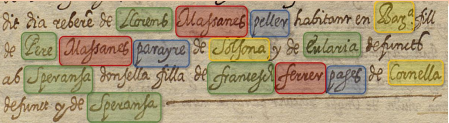 dit dia rebere de Llorens Massanes peller habitant en Barª fill
de Pere Massanes parayre de Solsona y de Eularia defuncts
ab Speransa donsella filla de francesch ferrer pages de Cornella
defunct y de Speransa